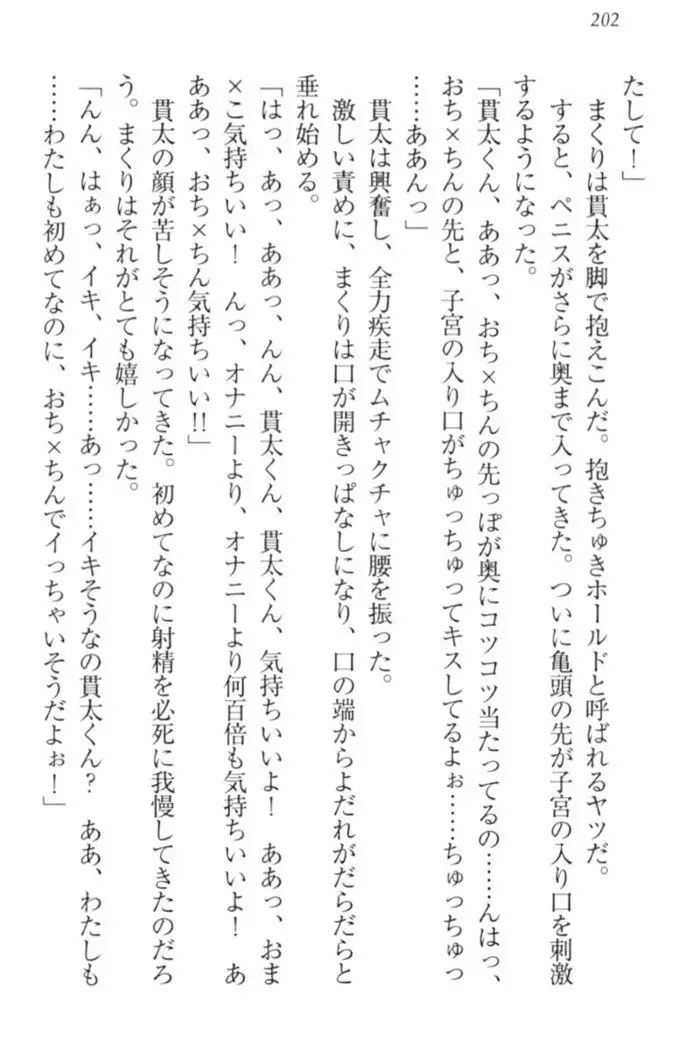 202
たして！」
　まくりは貫太を脚で抱えこんだ。抱きちゅきホールドと呼ばれるヤツだ。
　すると、ペニスがさらに奥まで入ってきた。ついに亀頭の先が子宮の入り口を刺激
するようになった。
「貫太くん、ああっ、おち×ちんの先っぽが奥にコツコツ当たってるの……んはっ、
おち×ちんの先と、子宮の入り口がちゅっちゅってキスしてるよぉ……ちゅっちゅっ
……ああんっ」
　貫太は興奮し、全力疾走でムチャクチャに腰を振った。
　激しい責めに、まくりは口が開きっぱなしになり、口の端からよだれがだらだらと
垂れ始める。
「はっ、あっ、ああっ、んん、貫太くん、貫太くん、気持ちいいよ！　ああっ、おま
×こ気持ちいい！　んっ、オナニーより、オナニーより何百倍も気持ちいいよ！　あ
ああっ、おち×ちん気持ちいい!!」
　貫太の顔が苦しそうになってきた。初めてなのに射精を必死に我慢してきたのだろ
う。まくりはそれがとても嬉しかった。
「んん、はぁっ、イキ、イキ……あっ……イキそうなの貫太くん？　ああ、わたしも
……わたしも初めてなのに、おち×ちんでイっちゃいそうだよぉ！」